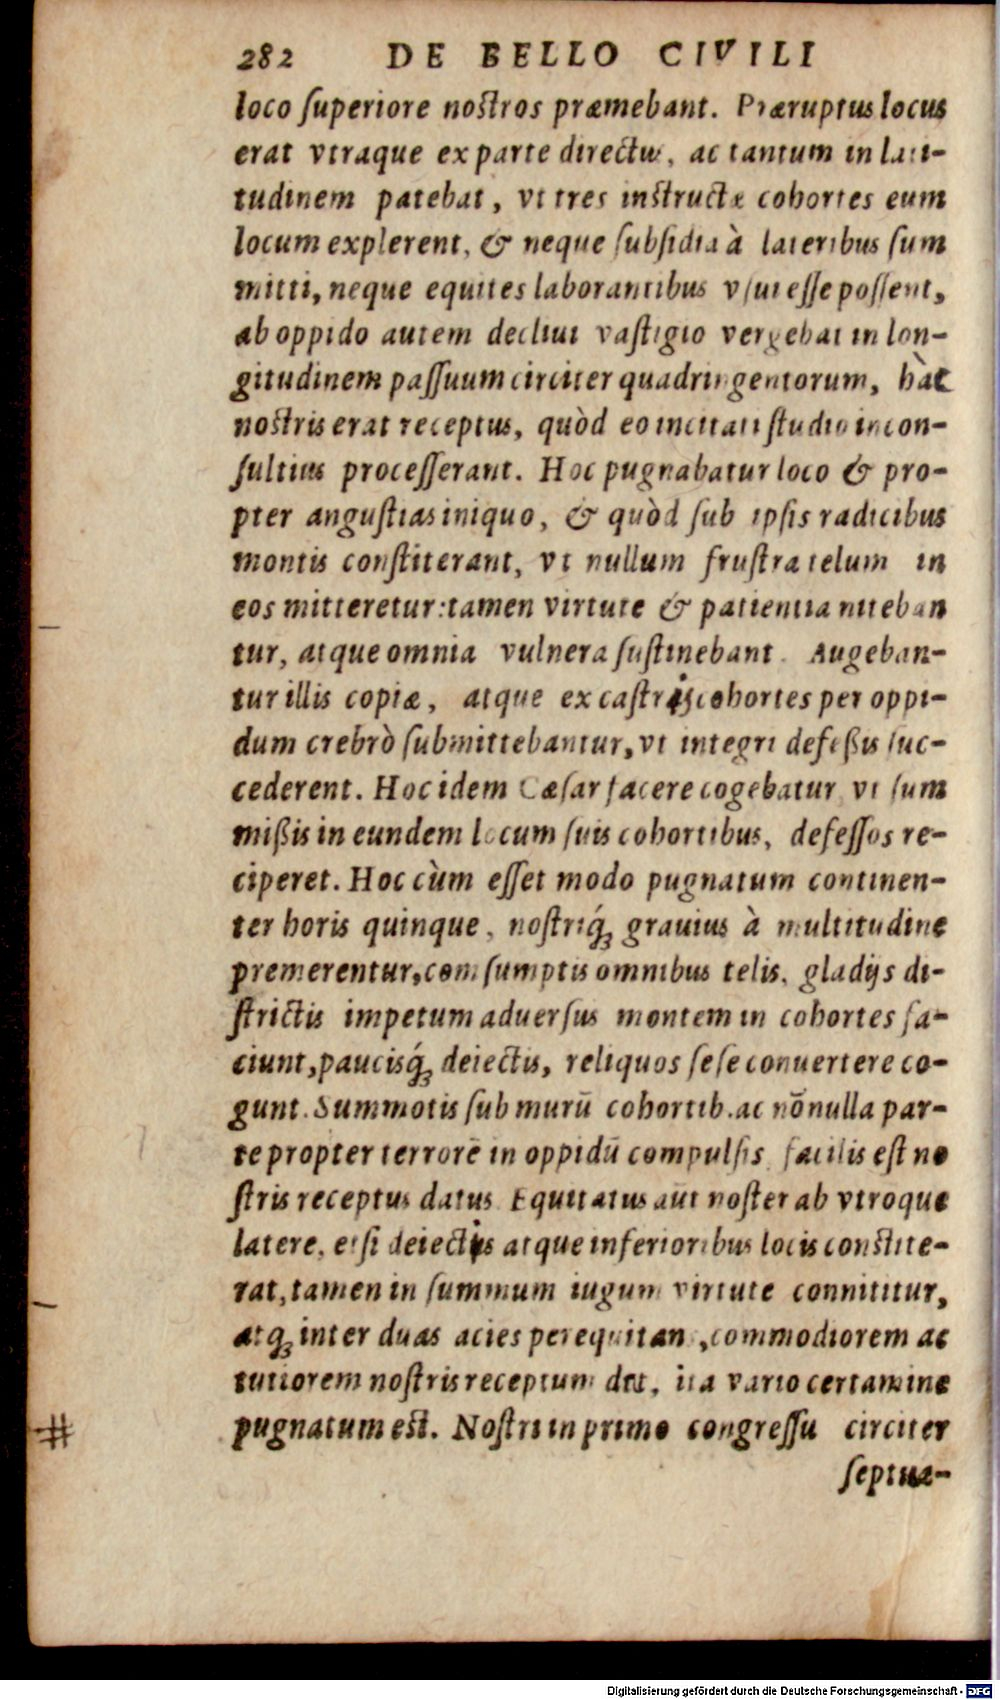 282 DE BELLO CIVILI
loco ſuperiore nostros præmebant. Præruptus locus
erat vtraque ex parte directus, ac tantum in lati-
tudinem patebat, vt tres instructæ cohortes eum
locum explerent, & neque ſubſidia à lateribus ſum
mitti, neque equites laborantibus vſui eſſe poſſent,
ab oppido autem decliui vaſtigio vergebat in lon-
gitudinem paſſuum circiter quadringentorum, hàc
nostris erat receptus, quòd eo incitati ſtudio incon-
ſultius proceſſerant. Hoc pugnabatur loco & pro-
pter anguſtias iniquo, & quòd ſub ipſis radicibus
montis conſtiterant, vt nullum fruſtra telum in
eos mitteretur: tamen virtute & patientia niteban
tur, atque omnia vulnera ſuſtinebant. Augeban-
tur illis copiæ, atque ex castris cohortes per oppi-
dum crebrò ſubmittebantur, vt integri defeßis ſuc-
cederent. Hoc idem Cæſar facere cogebatur vt ſum
mißis in eundem locum ſuis cohortibus, defeſſos re-
ciperet. Hoc cùm eſſet modo pugnatum continen-
ter horis quinque, noſtriq́; grauius à multitudine
premerentur, comſumptis omnibus telis, gladijs di-
ſtrictis impetum aduerſus montem in cohortes fa-
ciunt, paucisq́; deiectis, reliquos ſeſe conuertere co-
gunt. Summotis ſub murū cohortib. ac nōnulla par-
te propter terrorē in oppidū compulſis, facilis est no
ſtris receptus datus. Equitatus aūt noſter ab vtroque
latere, etſi deiectis atque inferioribus locis constite-
rat, tamen in ſummum iugum virtute connititur,
atq; inter duas acies perequitans, commodiorem ac
tutiorem noſtris receptum dat, ita vario certamine
pugnatum est. Noſtri in primo congreſſu circiter
ſeptua-
Digitalisierung gefördert durch die Deutsche Forschungsgemeinschaft - DFG